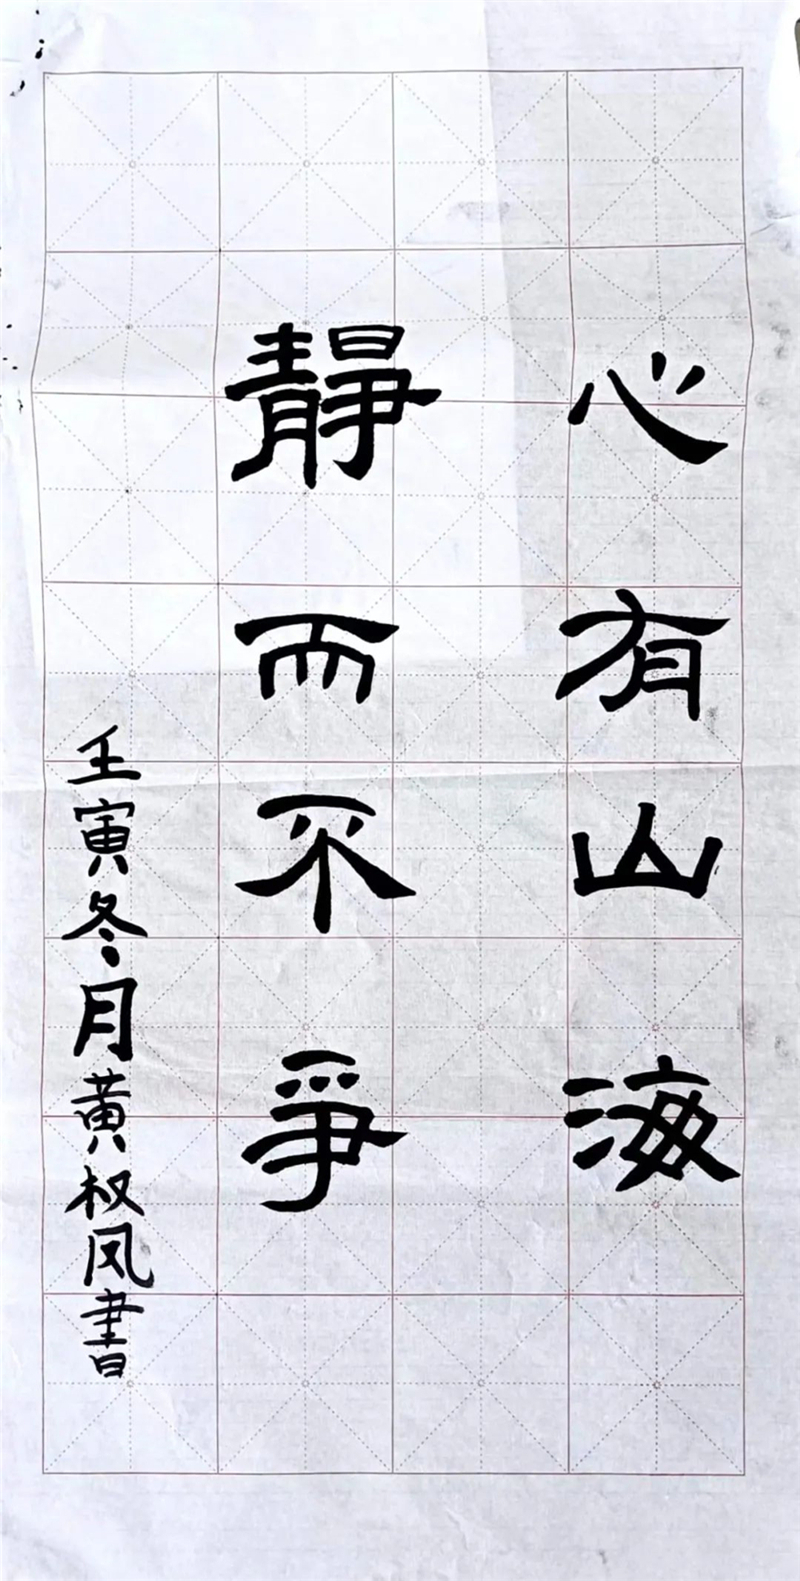 心有山海
靜而不爭
壬寅冬月黄权凤書